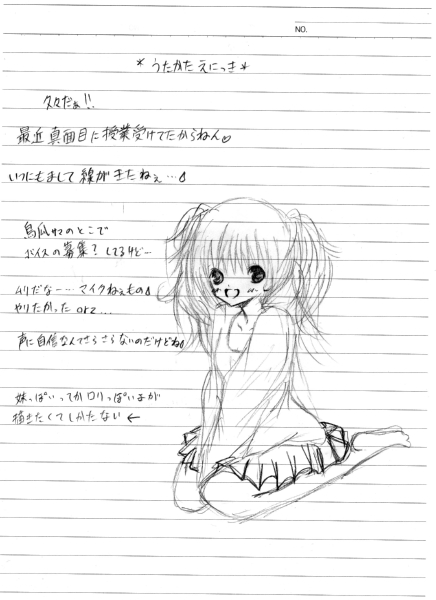 NO.
*うたかたえにっき*
久々だぁ!!
最近真面目に授業受けてたからねん♡
いつにもまして線がきたねぇ…
烏瓜サマのとこで
ボイスの募集?してるけど…
ムリだなー…マイクねぇもの
やりたかったorz…
声に自信なんてさらさらないのだけどね
妹っぽいってかロリっぽい子が
描きたくてしかたない←